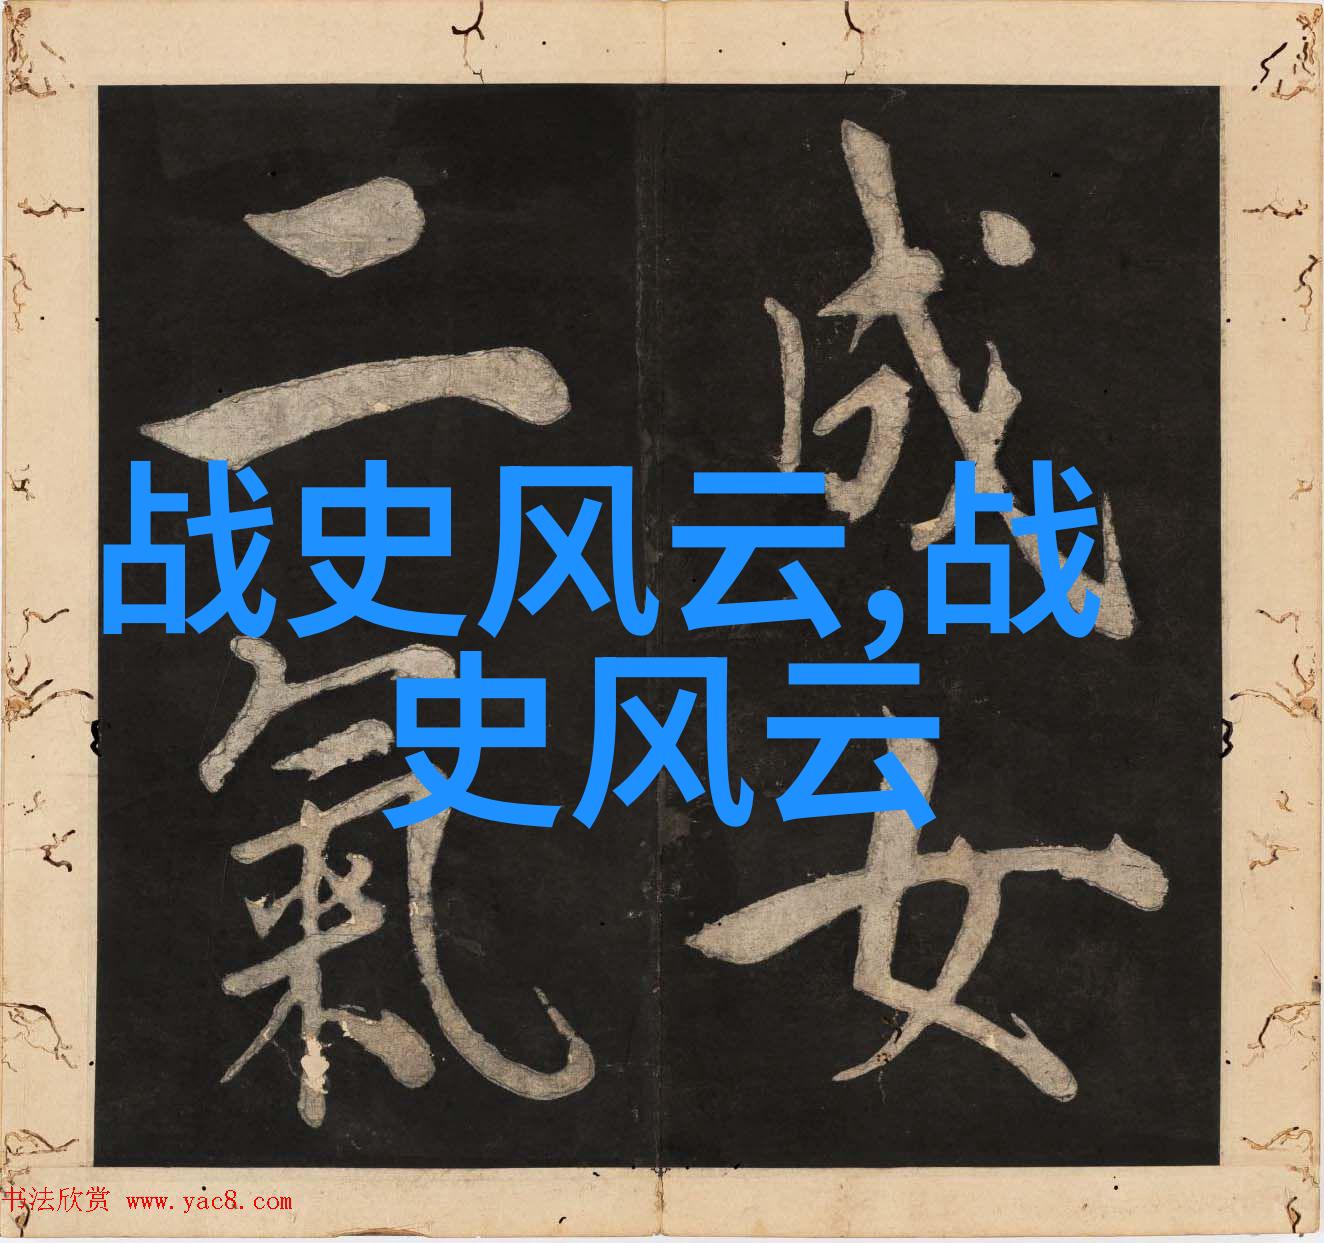 成女
二氣
战史风云,战
史风云
书法欣赏 www.yac8.com